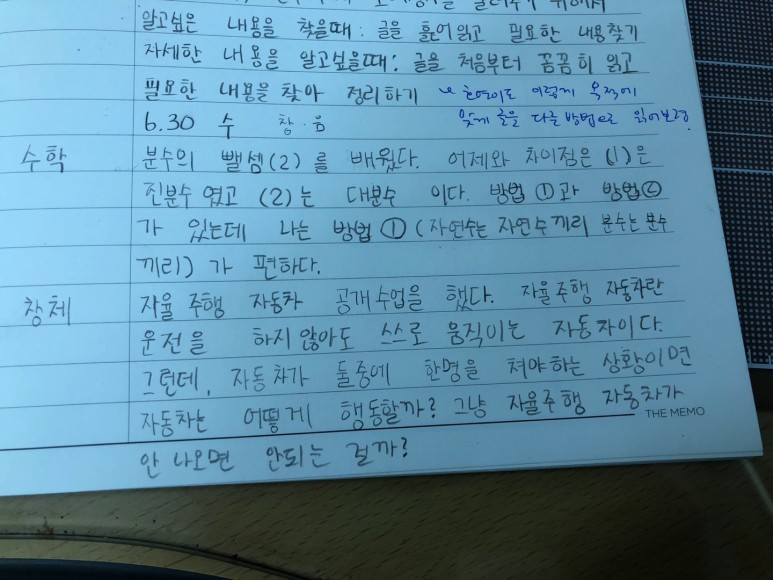 알고싶은 내용을 찾을때: 글을 훑어읽고 필요한 내용찾기
자세한 내용을 알고싶을때: 글을 처음부터 꼼꼼히 읽고
필요한 내용을 찾아 정리하기
이렇게 목적에
맞게 글을 다른 방법으로 읽어보렴
6.30 수 창·음
수학 분수의 뺄셈(2)를 배웠다. 어제와 차이점은 (1)은
진분수 였고 (2)는 대분수 이다. 방법 ①과 방법②
가 있는데 나는 방법 ①(자연수는 자연수끼리 분수는 분수
끼리)가 편하다.
창체 자율 주행 자동차 공개수업을 했다. 자율주행 자동차란
운전을 하지않아도 스스로 움직이는 자동차이다.
그런데, 자동차가 둘중에 한명을 쳐야하는 상황이면
자동차는 어떻게 행동할까? 그냥 자율주행 자동차가
THE MEMO
안 나오면 안되는 걸까?